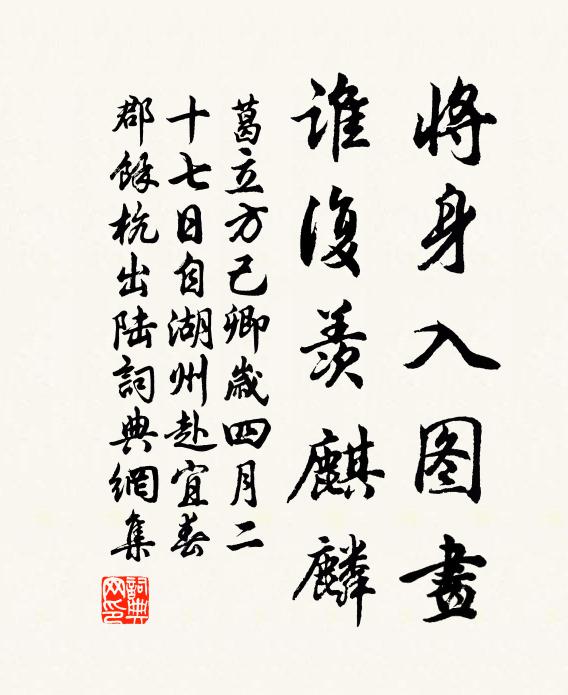 将身入图畫
谁復羡麒麟
葛立方己卿嵗四月二
十七日自湖州赴宜春
郡餘杭出陆詞典網集
詞典网印